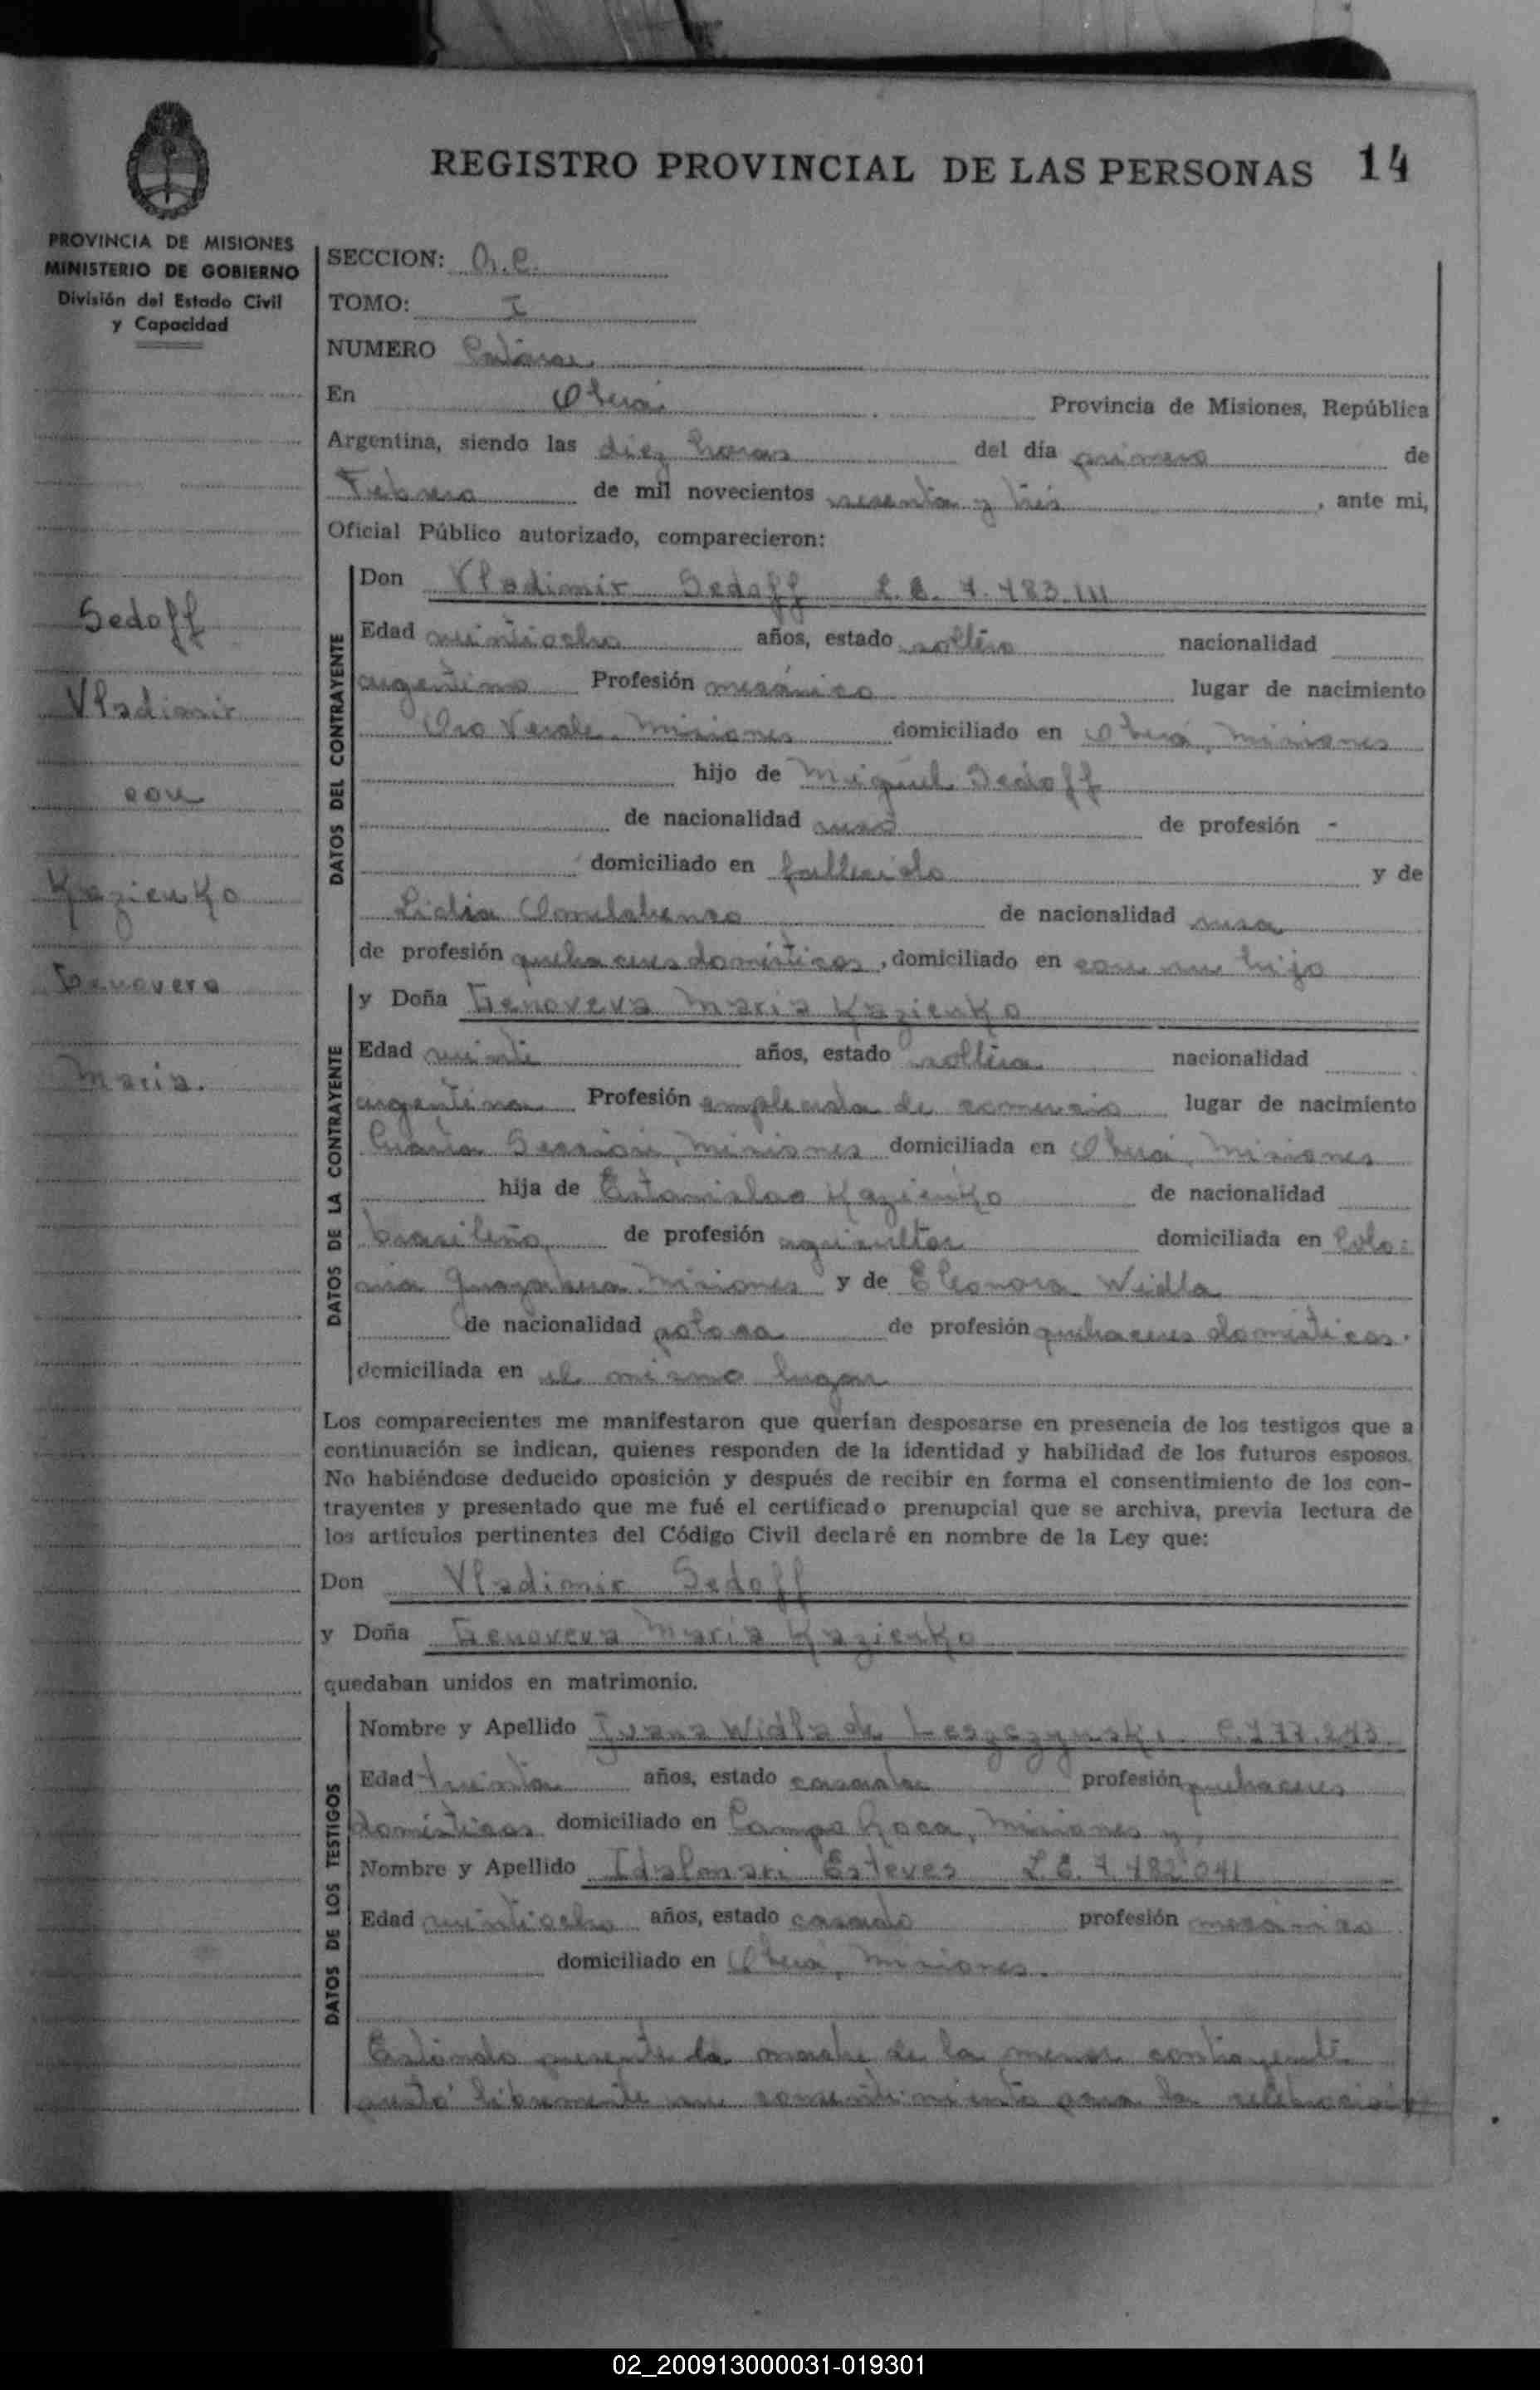 REGISTRO PROVINCIAL DE LAS PERSONAS 14
PROVINCIA DE MISIONES
MINISTERIO DE GOBIERNO
División del Estado Civil
y Capacidad
Sedoff
Vladimir
con
Kazienko
Genoveva
Maria.
SECCION:
TOMO: I
NUMERO Catorce
En Oberá Provincia de Misiones, República
Argentina, siendo las diez horas del día primero de
Febrero de mil novecientos sesenta y tres, ante mi,
Oficial Público autorizado, comparecieron:
DATOS DEL CONTRAYENTE
Don Vladimir Sedoff L.E. 7.483.111
Edad veintiocho años, estado soltero nacionalidad
argentino Profesión mecánico lugar de nacimiento
Oro Verde, Misiones domiciliado en Oberá, Misiones
hijo de Miguel Sedoff
de nacionalidad ruso de profesión -
domiciliado en fallecido y de
Lidia de nacionalidad rusa
de profesión quehaceres domésticos, domiciliado en con su hijo
DATOS DE LA CONTRAYENTE
y Doña Genoveva Maria Kazienko
Edad veinte años, estado soltera nacionalidad
argentina Profesión empleada de comercio lugar de nacimiento
Cuarta Sección, Misiones domiciliada en Oberá, Misiones
hija de Estanislao Kazienko de nacionalidad
brasileño, de profesión agricultor domiciliada en Colo:
nia Guayabera Misiones y de Eleonora Widla
de nacionalidad polaca de profesión quehaceres domésticos.
domiciliada en el mismo lugar
Los comparecientes me manifestaron que querían desposarse en presencia de los testigos que a
continuación se indican, quienes responden de la identidad y habilidad de los futuros esposos.
No habiéndose deducido oposición y después de recibir en forma el consentimiento de los con-
trayentes y presentado que me fué el certificado prenupcial que se archiva, previa lectura de
los artículos pertinentes del Código Civil declaré en nombre de la Ley que:
Don Vladimir Sedoff
y Doña Genoveva Maria Kazienko
quedaban unidos en matrimonio.
DATOS DE LOS TESTIGOS
Nombre y Apellido Juana Widla de Leszczynski
Edad treinta años, estado casada profesión quehaceres
domésticos domiciliado en Campo Roca, Misiones y,
Nombre y Apellido Esteves L.E. 7.482.041
Edad veintiocho años, estado casado profesión mecánico
domiciliado en Oberá, Misiones.
Estando presente la madre de la menor contrayente
prestó libremente su consentimiento para la celebración
02_200913000031-019301